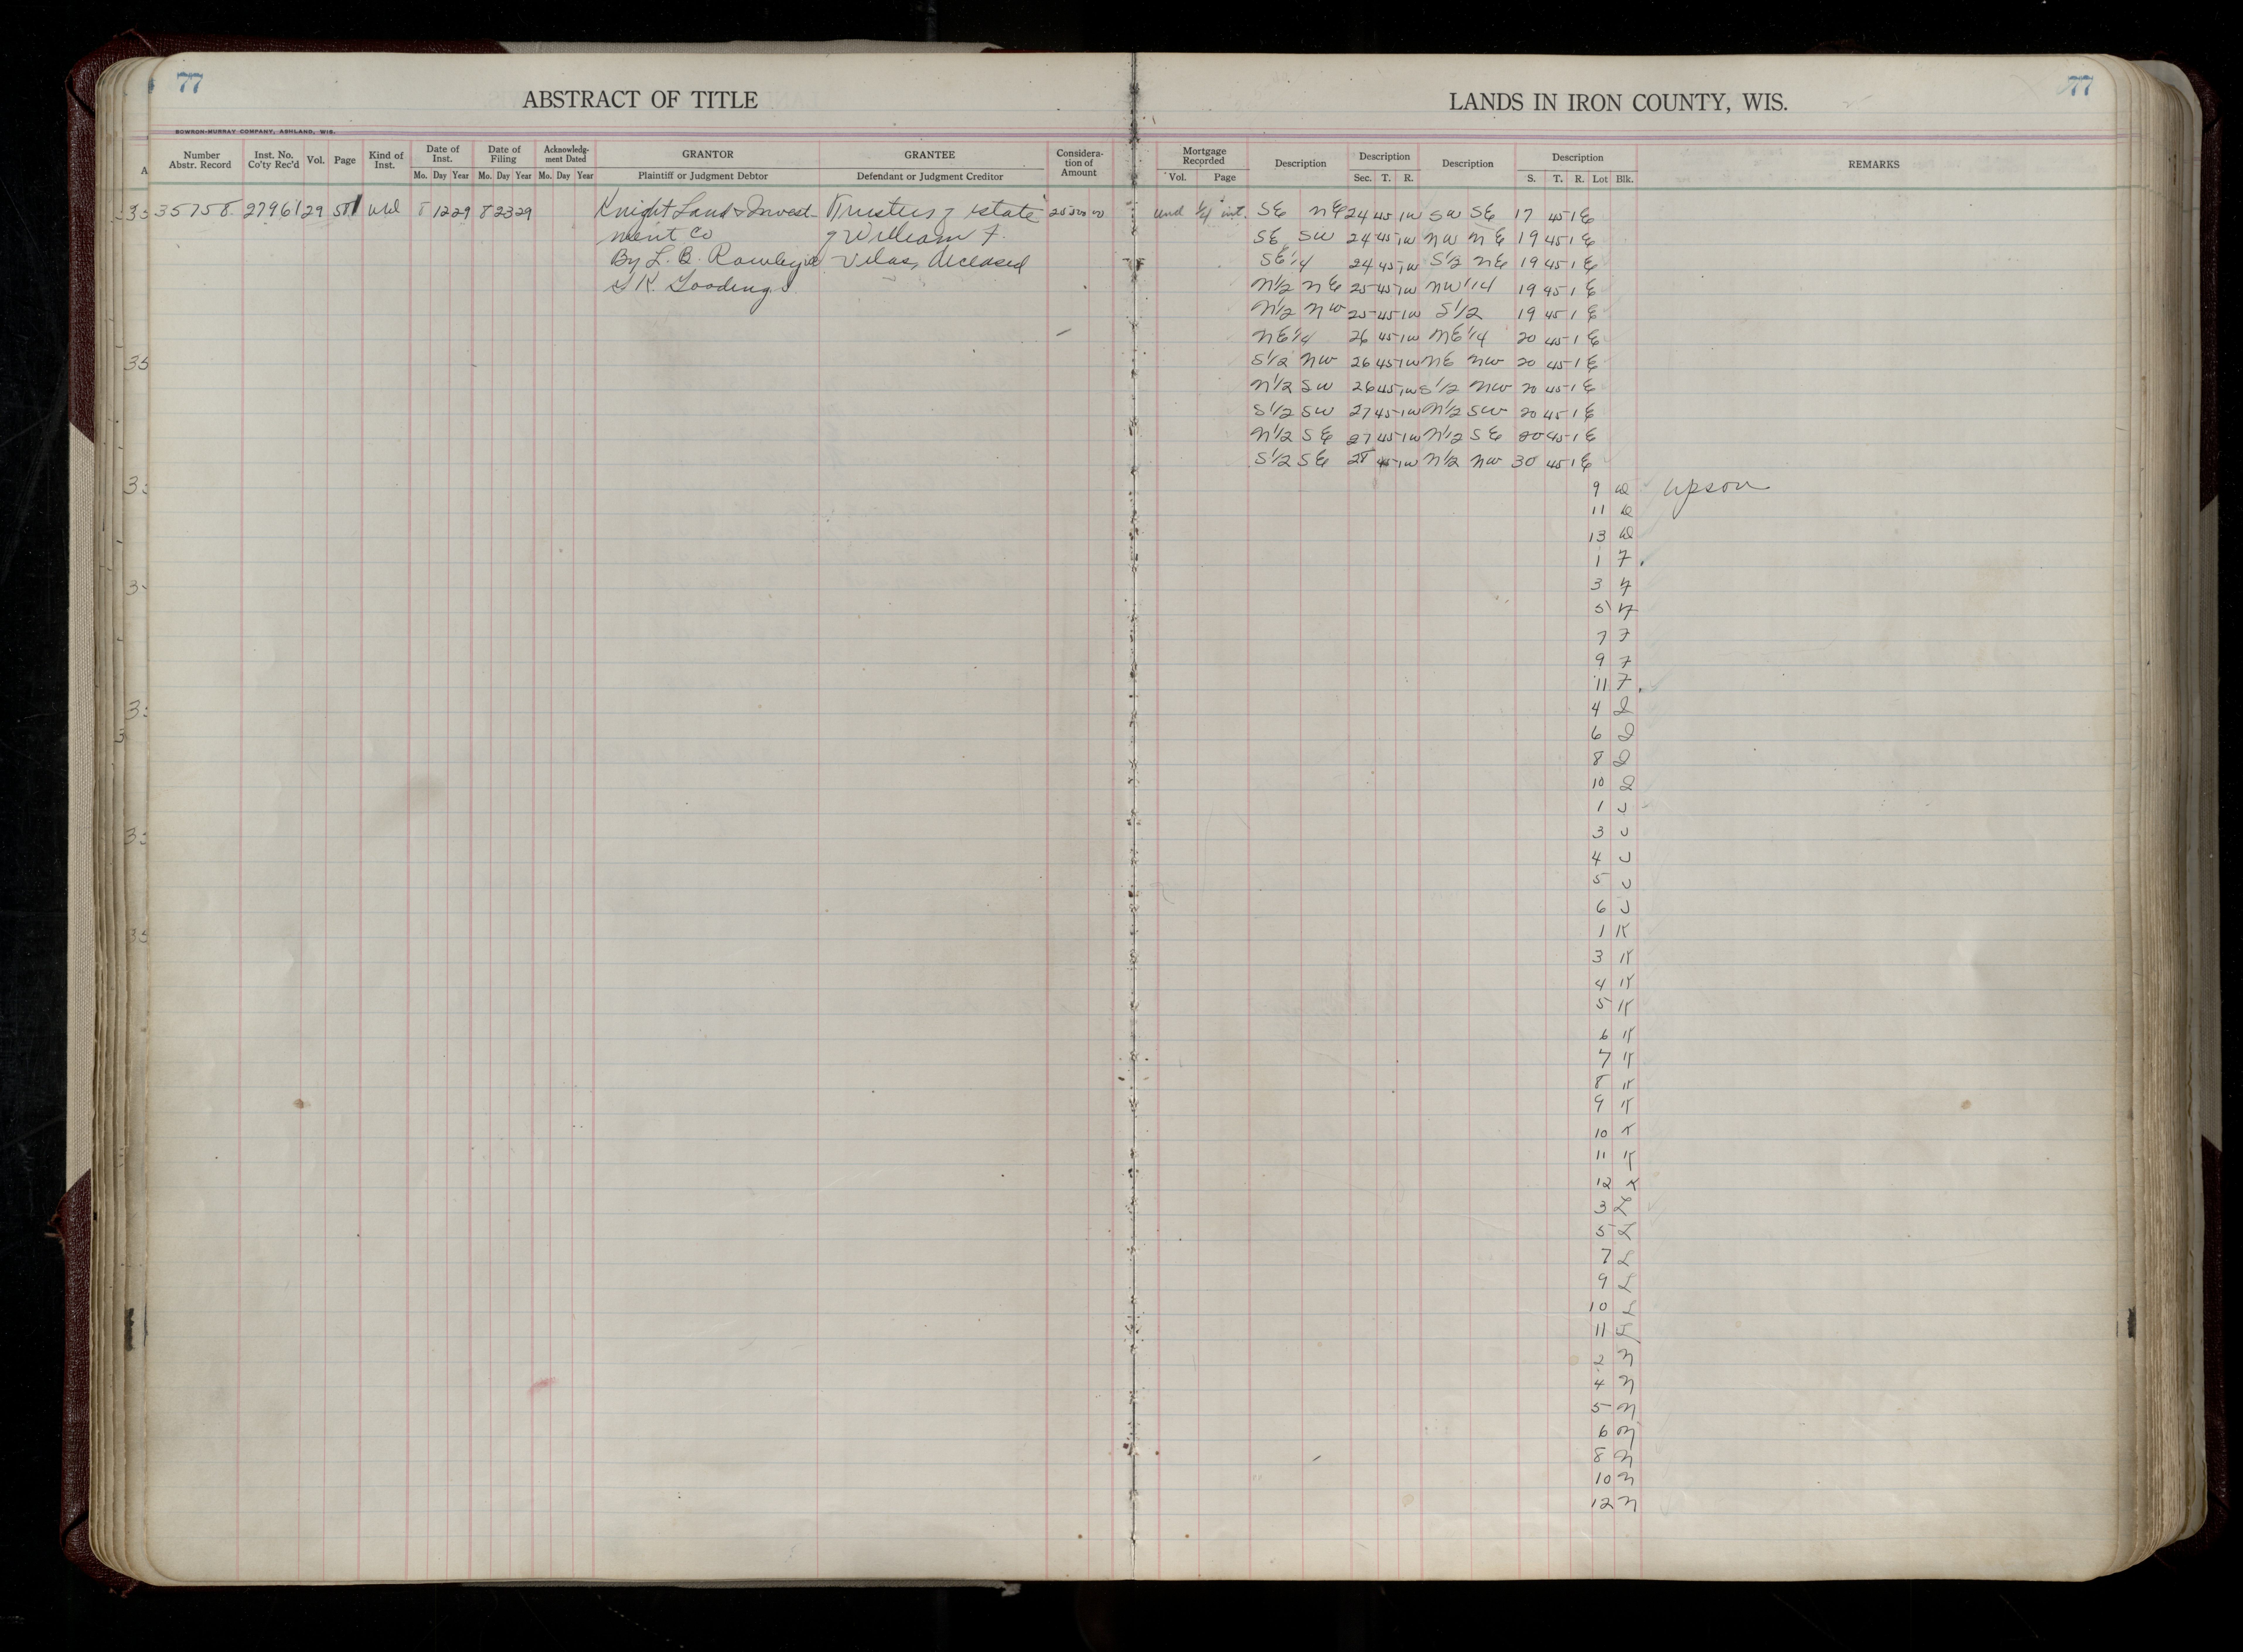 77
ABSTRACT OF TITLE
LANDS IN IRON COUNTY, WIS.
77
BOWRON-MURRAY COMPANY, ASHLAND, WIS.
Number Abstr. Record | Inst. No. Co'ty Rec'd | Vol. | Page | Kind of Inst. | Date of Inst. Mo. Day Year | Date of Filing Mo. Day Year | Acknowledg-ment Dated Mo. Day Year | GRANTOR Plaintiff or Judgment Debtor | GRANTEE Defendant or Judgment Creditor | Considera-tion of Amount | Mortgage Recorded Vol. Page | Description | Description Sec. T. R. | Description | Description S. T. R. Lot Blk. | REMARKS
35758 27961 29 Wd 8 12 29 8 23 29 Knight Land & Invest- Trustees of estate und 1/4 int. SE NE 24 45 1W SW SE 17 45 1 E
ment Co of William F. SE SW 24 45 1W NW NE 19 45 1 E
By L. B. Rowley Vilas, deceased SE 1/4 24 45 1W S1/2 NE 19 45 1 E
N1/2 NE 25 45 1W NW 1/4 19 45 1 E
N1/2 NW 25 45 1W S1/2 19 45 1 E
NE 1/4 26 45 1W NE 1/4 20 45 1 E
S1/2 NW 26 45 1W NE NW 20 45 1 E
N1/2 SW 26 45 1W S1/2 NW 20 45 1 E
S1/2 SW 27 45 1W N1/2 SW 20 45 1 E
N1/2 SE 27 45 1W N1/2 SE 20 45 1 E
S1/2 SE 28 45 1W N1/2 NW 30 45 1 E
9 Upson
11
13
1 F
3 F
5 F
7 F
9 F
11 F
4 I
6 I
8 I
10 I
1 J
3 J
4 J
5 J
6 J
1 K
3 K
4 K
5 K
6 K
7 K
8 K
9 K
10 K
11 K
12 K
3 L
5 L
7 L
9 L
10 L
11 L
2 N
4 N
5 N
6 N
8 N
10 N
12 N